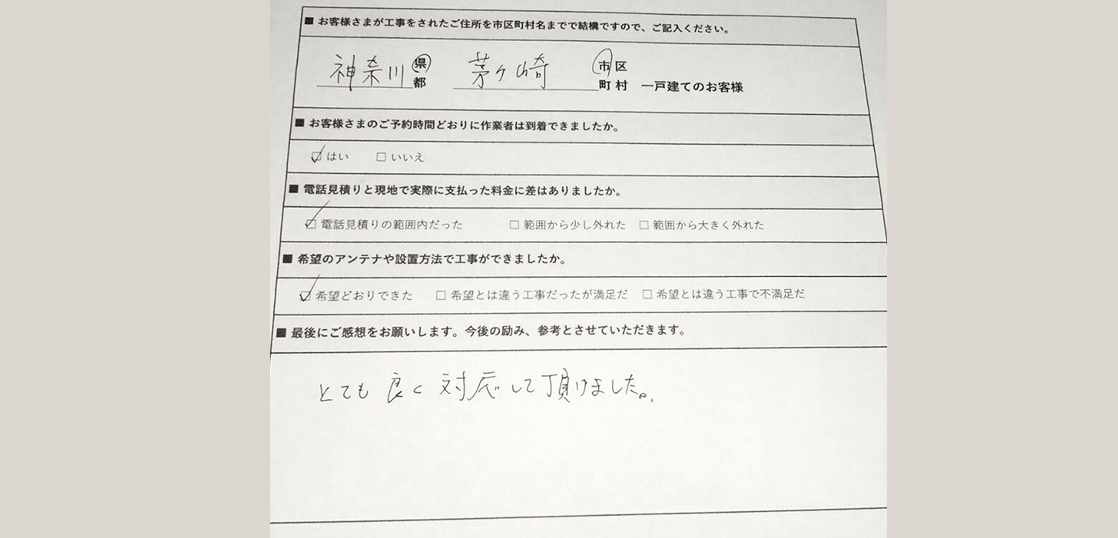 ■ お客様さまが工事をされたご住所を市区町村名までで結構ですので、ご記入ください。
神奈川 県都 茅ケ崎 市区町村 一戸建てのお客様
■ お客様さまのご予約時間どおりに作業者は到着できましたか。
☑ はい □ いいえ
■ 電話見積りと現地で実際に支払った料金に差はありましたか。
☑ 電話見積りの範囲内だった □ 範囲から少し外れた □ 範囲から大きく外れた
■ 希望のアンテナや設置方法で工事ができましたか。
☑ 希望どおりできた □ 希望とは違う工事だったが満足だ □ 希望とは違う工事で不満足だ
■ 最後にご感想をお願いします。今後の励み、参考とさせていただきます。
とても良く対応して頂けました。